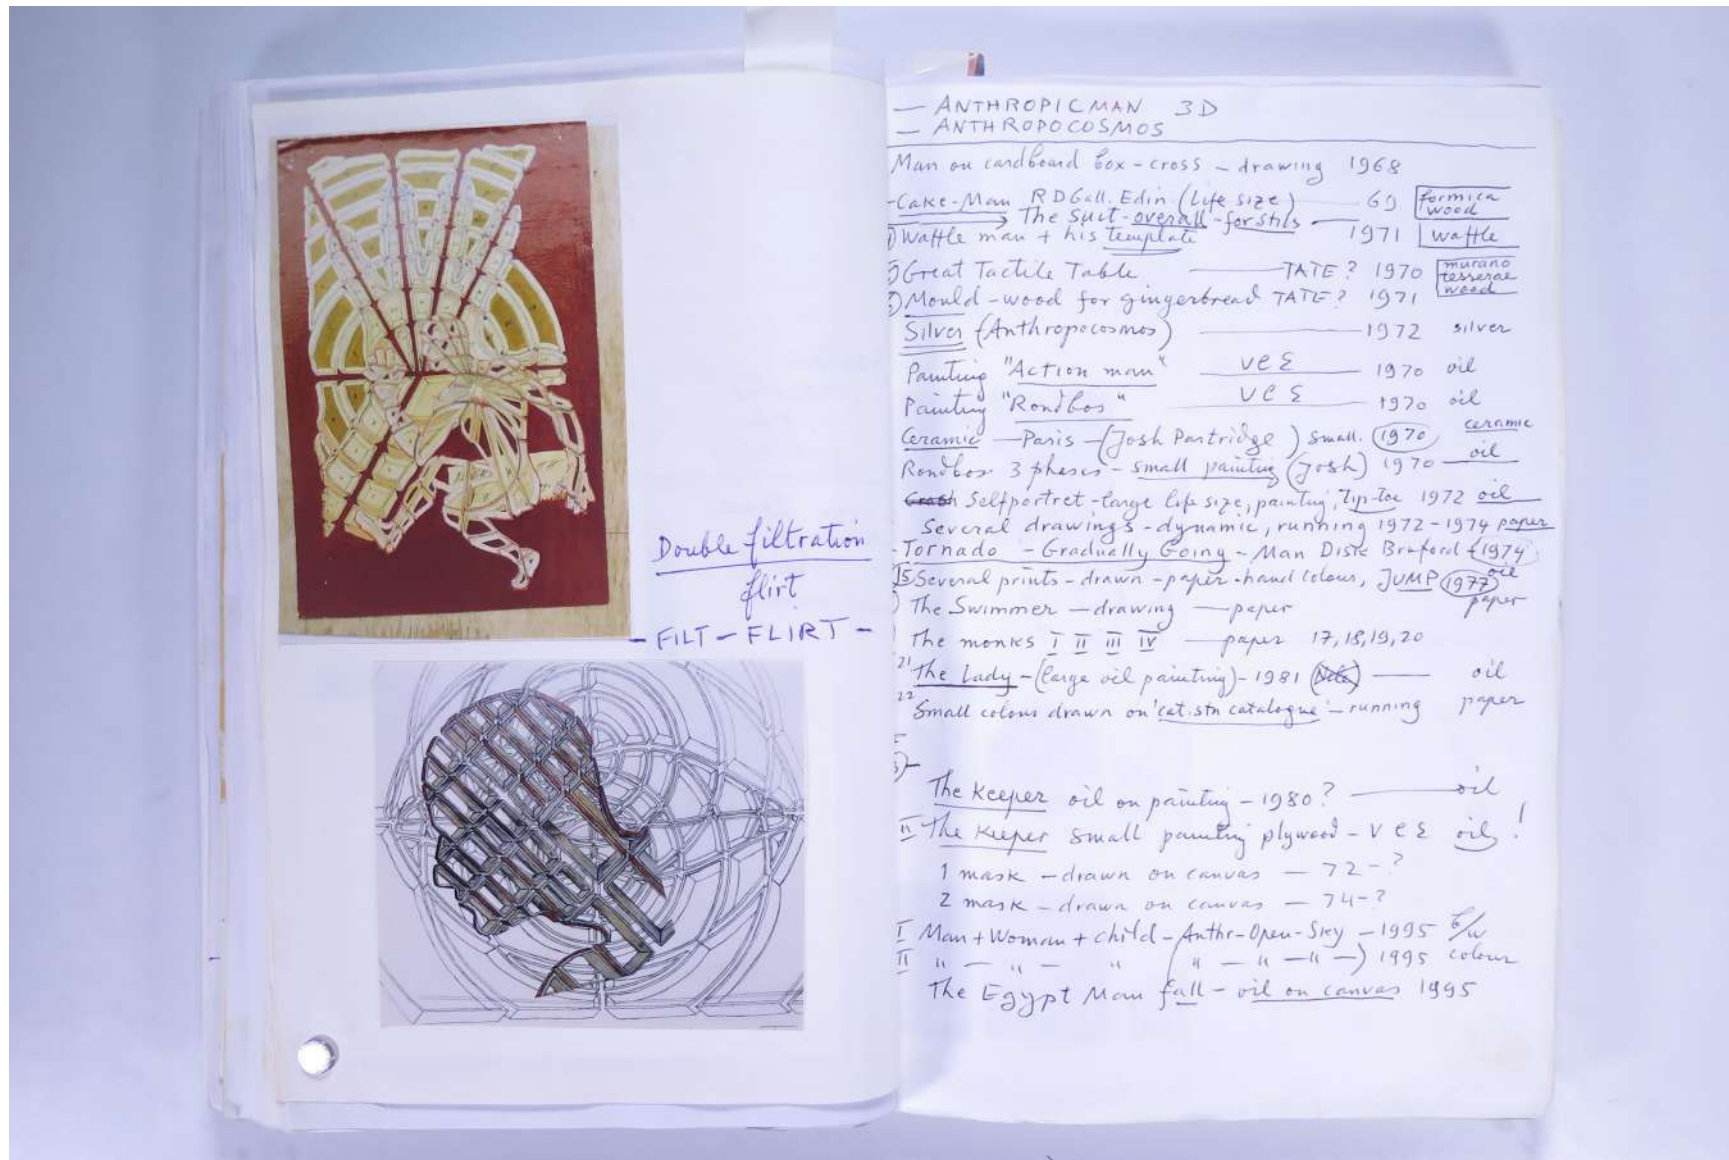 Double filtration
flirt
- FILT - FLIRT -
— ANTHROPICMAN 3D
— ANTHROPOCOSMOS
Man on cardboard box - cross - drawing 1968
- Cake-Man RDGall. Edin (Life size) 69 formica wood
The Suit - overall - for
Waffle man + his template 1971 waffle
Great Tactile Table — TATE? 1970 murano tesserae wood
Mould - wood for gingerbread TATE? 1971
Silver (Anthropocosmos) — 1972 silver
Painting "Action man" 1970 oil
Painting "Rondbos" 1970 oil
Ceramic — Paris — (Josh Partridge) small. 1970 ceramic
Rondbos 3 phases - small painting (Josh) 1970 — oil
Selfportret - large life size, painting, Tip-Toe 1972 oil
Several drawings - dynamic, running 1972 - 1974 paper
- Tornado - Gradually Going - Man Disk 1974
15 Several prints - drawn - paper - hand colour, JUMP 1977 oil
The Swimmer — drawing — paper paper
The monks I II III IV — paper 17, 18, 19, 20
21 The Lady - (large oil painting) - 1981 — oil
22 Small colour drawn on 'cat.stn catalogue' - running paper
The Keeper oil on painting - 1980? — oil
II The Keeper small painting plywood - oil !
1 mask - drawn on canvas — 72 - ?
2 mask - drawn on canvas — 74 - ?
I Man + Woman + child - Anthr-Open-Sky — 1995 b/w
II " — " — " (" — " — " —) 1995 colour
The Egypt Man fall - oil on canvas 1995